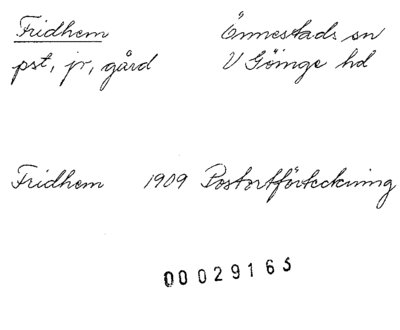 Fridhem Önnestads sn
pst, jr, gård V Göinge hd
Fridhem 1909 Postortförteckning
00029165